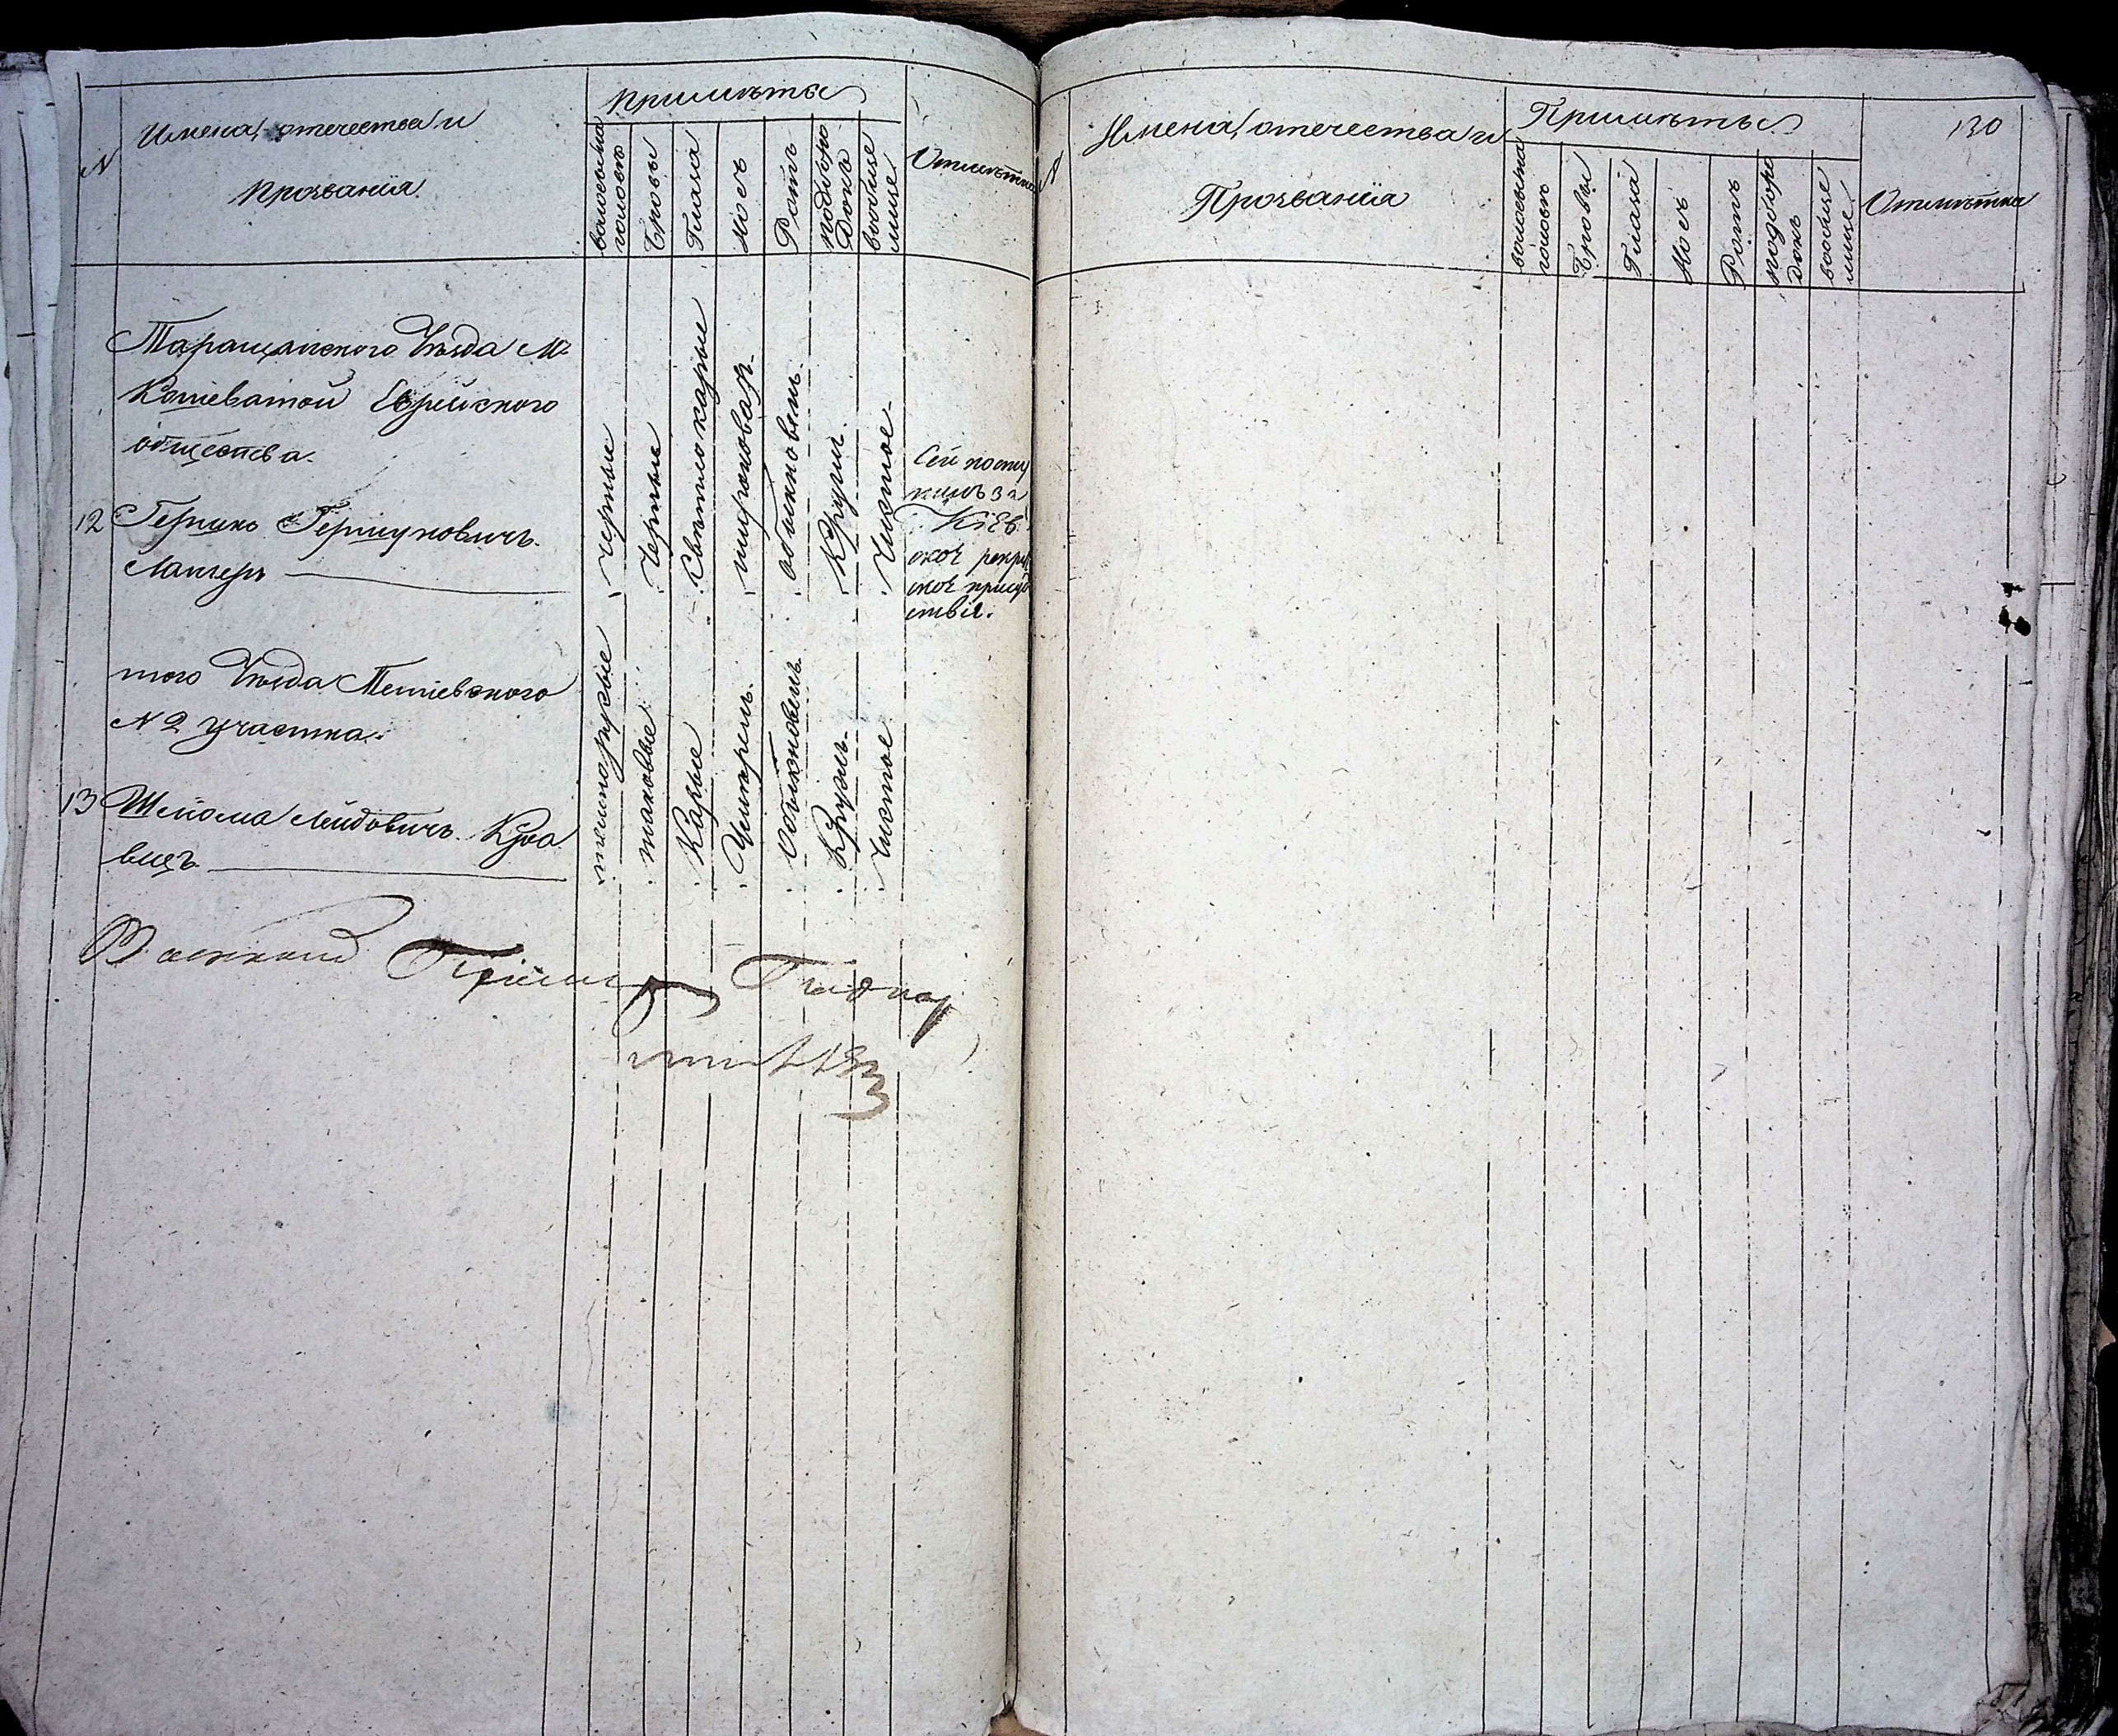 N
Имена, отечества и
Прозванiя
Примѣты
волосы на головѣ
Брови
Глаза
Носъ
Ротъ
подборо
докъ
вообще
лице
Отмѣтка
Таращанскаго Уѣзда М.
Кошеватой Еврейского
общества.
12 Гершко Гершуновичъ
Лантеръ
Черные
Черные
Свѣтло карые
широковат.
обыкновен.
Кругл.
Чистое
Сей посту
пилъ за
Кіев
ское рекру
ское присуд
ствіе.
того Уѣзда Тетіевского
N 2 участка.
13 Шлиома Лейдовичъ Кра
вецъ
темнорусые
таковые
Карые
Умѣрен.
Обыкновен.
Кругл.
Чистое
N
Имена, отечества и
Прозванiя
Примѣты
волосы на
головѣ
Брови
Глаза
Носъ
Ротъ
подборо
докъ
вообще
лице
130
Отмѣтка